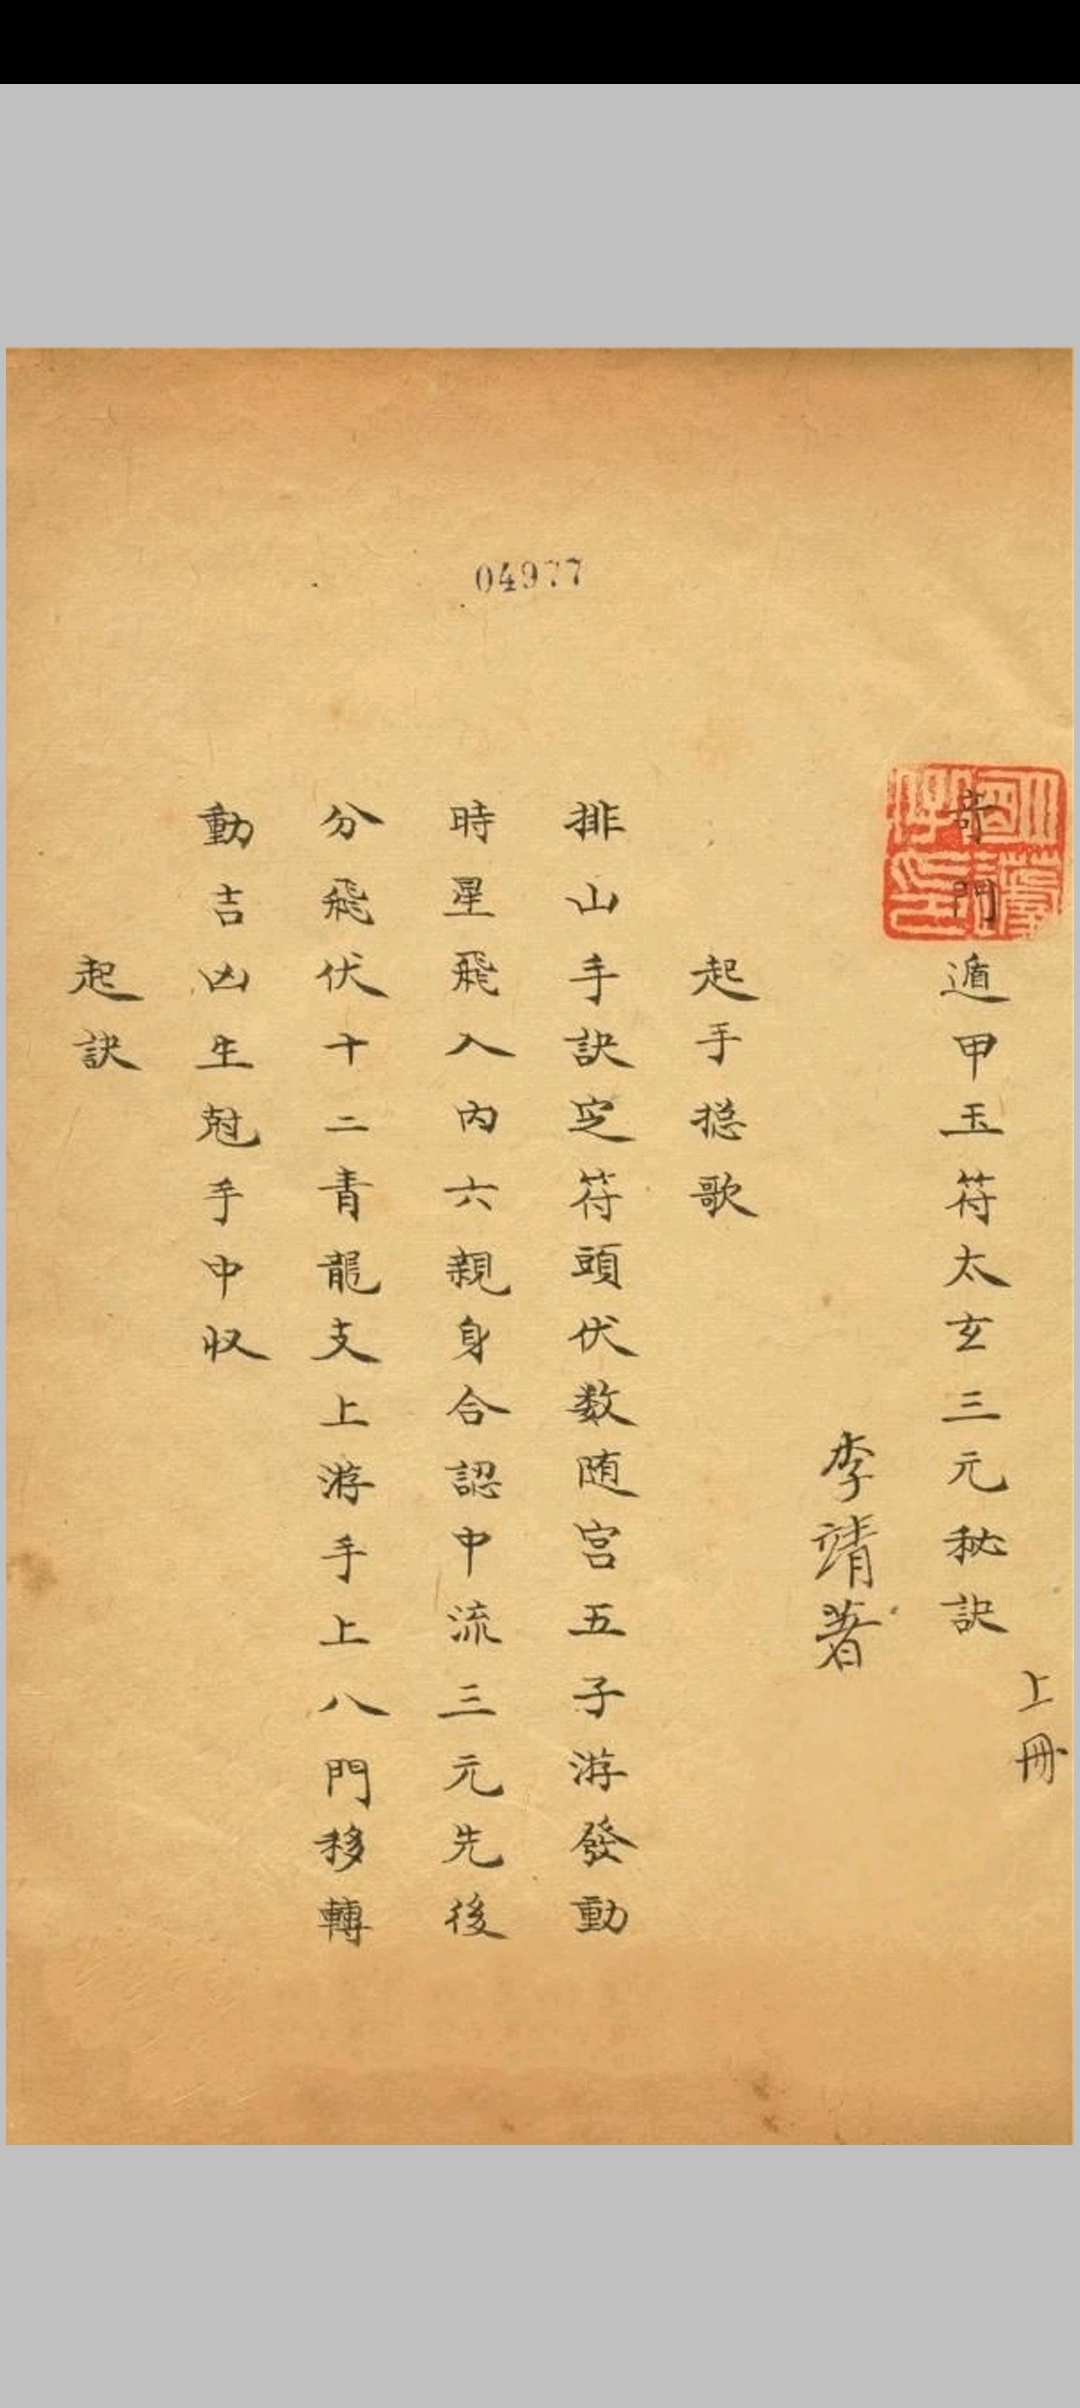 04977
奇門遁甲玉符太玄三元秘訣
上冊
李靖著
起手捴歌
排山手訣定符頭伏数随宫五子游發動
時星飛入內六親身合認中流三元先後
分飛伏十二青龍支上游手上八門移轉
動吉凶生尅手中収
起訣